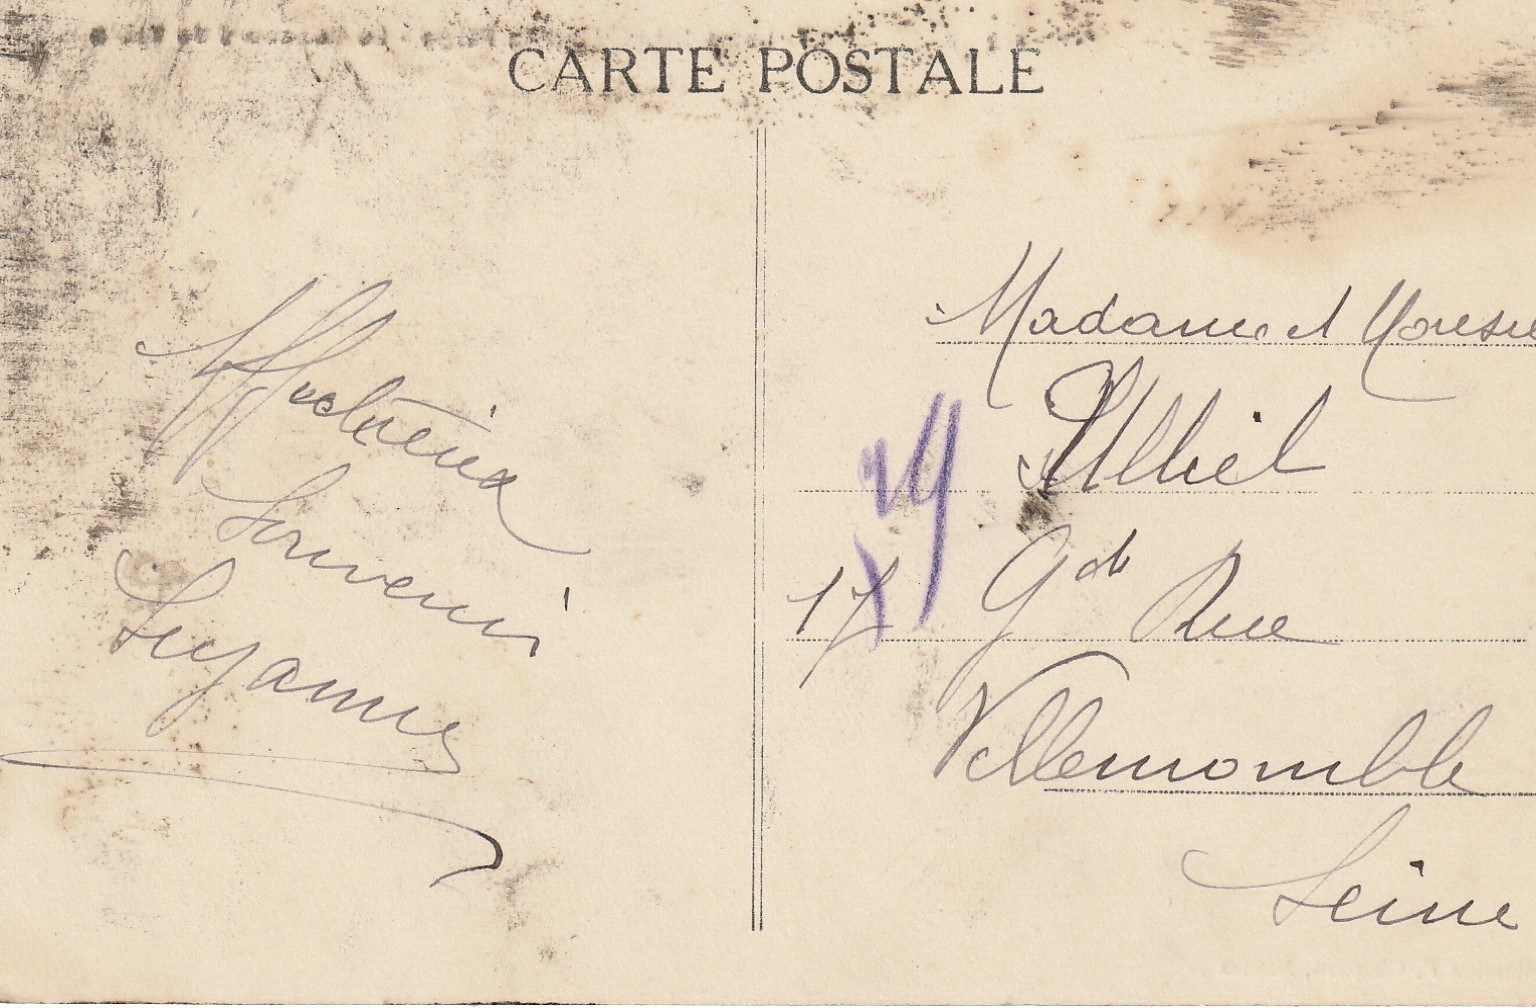 CARTE POSTALE
Affectueux
Souvenir
Suzanne
Madame et
17 Gde Rue
Villemomble
Seine